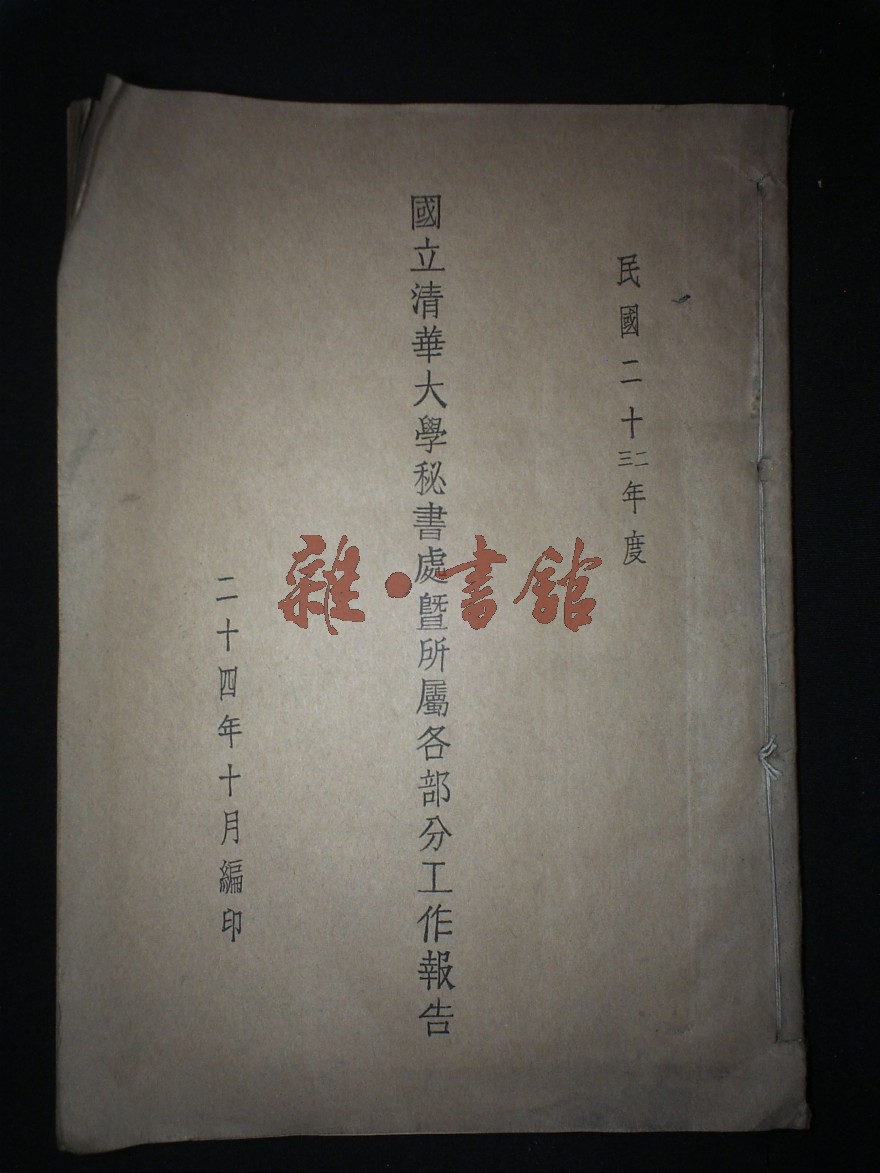 民國二十二三年度
國立清華大學秘書處暨所屬各部分工作報告
二十四年十月編印
雜·書館